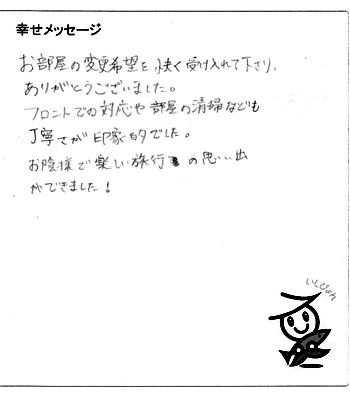 幸せメッセージ
お部屋の変更希望を快く受け入れて下さり、
ありがとうございました。
フロントでの対応や部屋の清掃なども
丁寧さが印象的でした。
お陰様で楽しい旅行の思い出
ができました！
いしぴょん